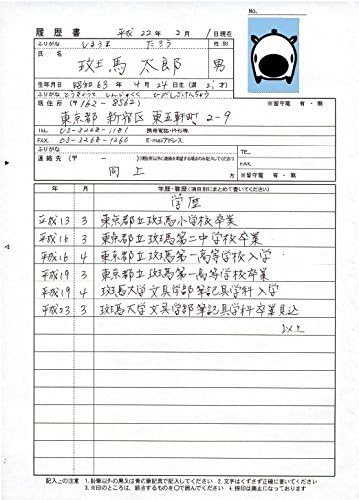 履歴書 平成 22年 2月 1日現在
ふりがな しまうま たろう 性別
氏名 斑馬 太郎 男
生年月日 昭和 63年 4月 24日生(満 21才)
ふりがな とうきょうと しんじゅくく ひがしごけんちょう
現住所(〒162-8562) ※留守電 有・無
東京都 新宿区 東五軒町 2-9
TEL. 03-3268-1181 携帯電話・PHS等.
FAX. 03-3268-1260 E-mailアドレス.
ふりがな TEL.
連絡先(〒 - )(現住所以外に連絡を希望する場合のみ記入してください) FAX.
同上 ※留守電 有・無
年 月 学歴・職歴(項目別にまとめて書いてください)
学歴
平成13 3 東京都立斑馬小学校卒業
平成16 3 東京都立斑馬第二中学校卒業
平成16 4 東京都立斑馬第一高等学校入学
平成19 3 東京都立斑馬第一高等学校卒業
平成19 4 斑馬大学文具学部筆記具学科入学
平成23 3 斑馬大学文具学部筆記具学科卒業見込
以上
記入上の注意 1.鉛筆以外の黒又は青の筆記具で記入してください 2.文字はくずさず正確に書いてください
3.※印のところは、該当するものを○で囲んでください 4.捺印は廃止になっております